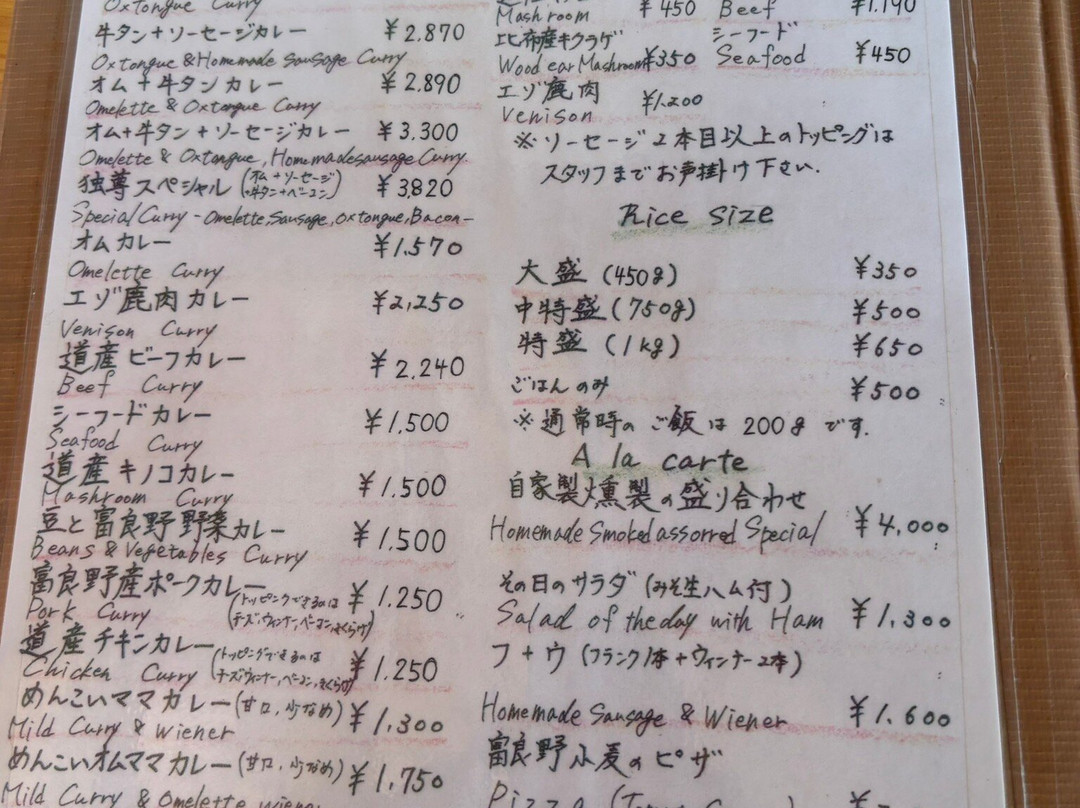 Oxtongue Curry
牛タン+ソーセージカレー ¥2.870
Oxtongue & Homemade sausage Curry
オム+牛タンカレー ¥2.890
Omelette & Oxtongue Curry
オム+牛タン+ソーセージカレー ¥3.300
Omelette & Oxtongue, Homemade sausage Curry
独尊スペシャル (オム+ソーセージ+牛タン+ベーコン) ¥3,820
Special Curry - Omelette, Sausage, Oxtongue, Bacon -
オムカレー ¥1.570
Omelette Curry
エゾ鹿肉カレー ¥2,250
Venison Curry
道産ビーフカレー ¥2.240
Beef Curry
シーフードカレー ¥1.500
Seafood Curry
道産キノコカレー ¥1.500
Mashroom Curry
豆と富良野野菜カレー ¥1.500
Beans & Vegetables Curry
富良野産ポークカレー ¥1.250
Pork Curry (トッピングできるのはチーズ,ウィンナー,ベーコン,きくらげ)
道産チキンカレー ¥1.250
Chicken Curry (トッピングできるのはチーズ,ウィンナー,ベーコン,きくらげ)
めんこいママカレー (甘口,少なめ) ¥1,300
Mild Curry & wiener
めんこいオムママカレー (甘口,少なめ) ¥1,750
Mild Curry & Omelette wiener
Mashroom ¥450 Beef ¥1.190
比布産キクラゲ シーフード
Wood ear Mashroom ¥350 Seafood ¥450
エゾ鹿肉
Venison ¥1.200
※ソーセージ2本目以上のトッピングは
スタッフまでお声掛け下さい.
Rice size
大盛 (450g) ¥350
中特盛 (750g) ¥500
特盛 (1kg) ¥650
ごはんのみ ¥500
※通常時のご飯は200gです.
A la carte
自家製燻製の盛り合わせ
Homemade Smoked assorred Special ¥4,000
その日のサラダ (みそ生ハム付)
Salad of the day with Ham ¥1,300
フ+ウ (フランク1本+ウィンナー2本)
Homemade Sausage & Wiener ¥1.600
富良野小麦のピザ
Pizza